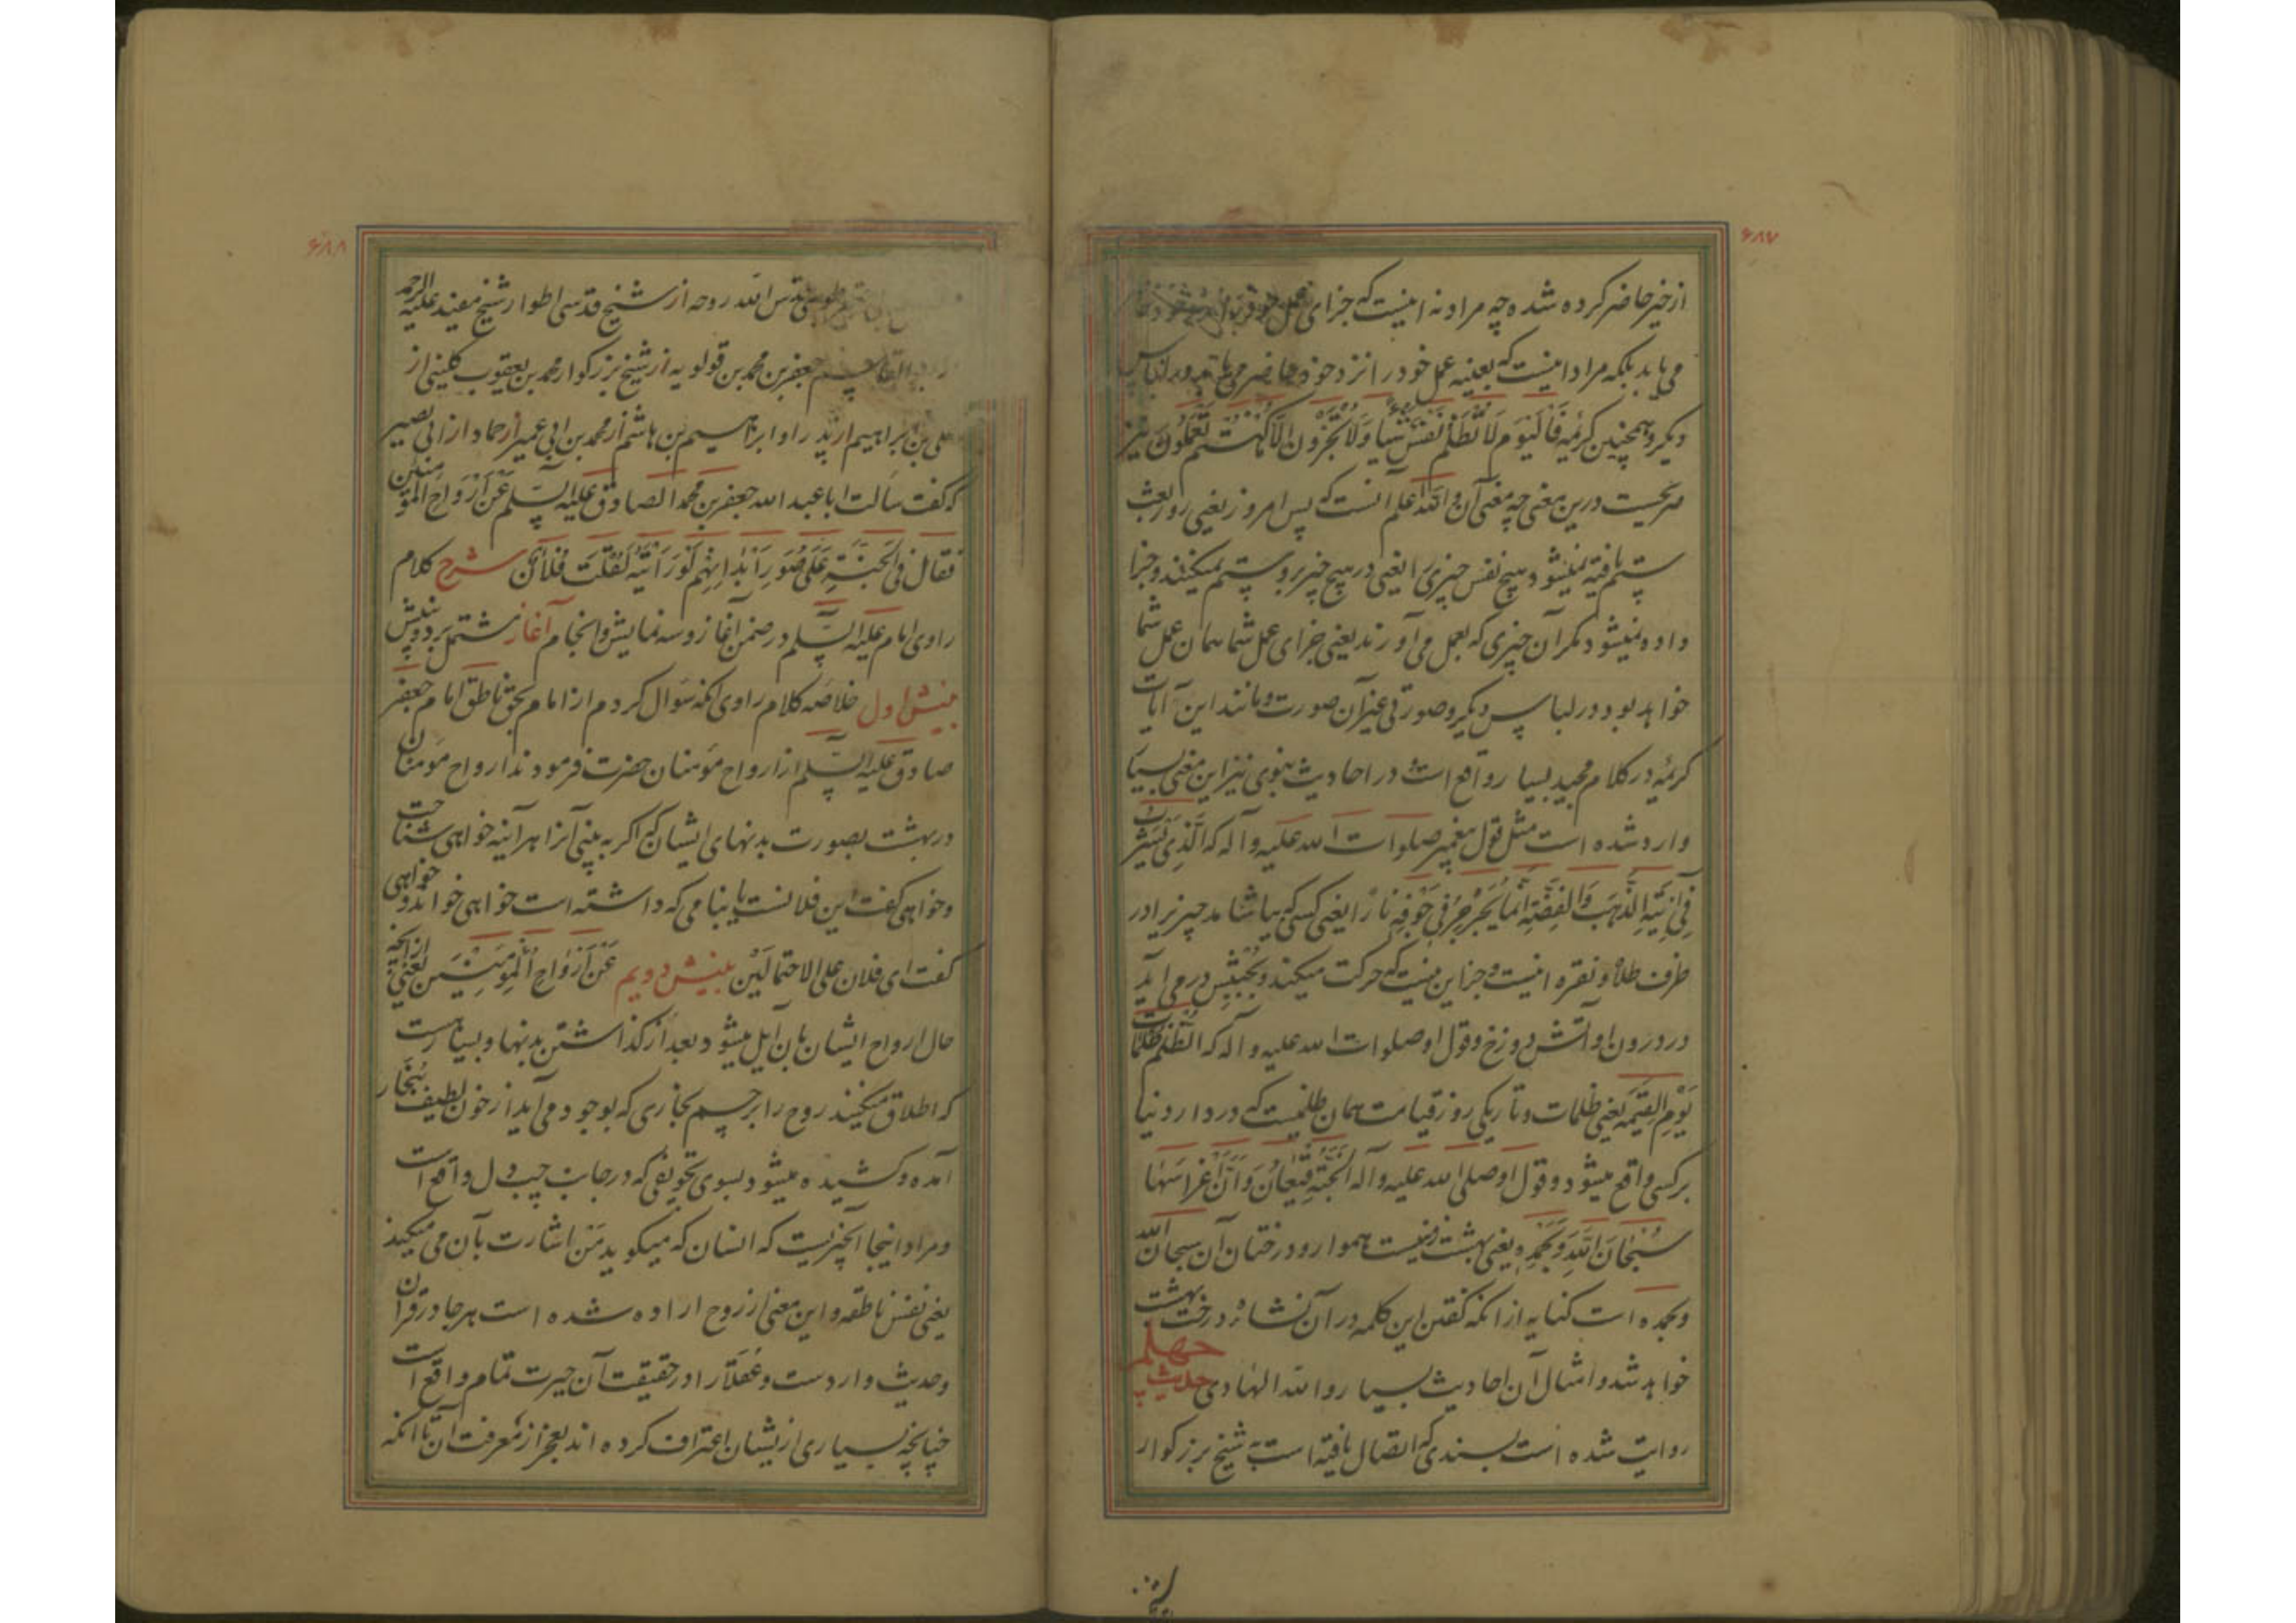 ۶۸۷
از خیر حاضر کرده شده چه مراد نه اینست که جزای عمل خود
می یابد بلکه مراد اینست که بعینه عمل خود را نزد خود حاضر می یابد در لباس
دیگر و همچنین کریمه فَالْیَومَ لَا تُظْلَمُ نَفْسٌ شَیْاً وَلَا تُجْزَوْنَ اِلَّا مَا کُنْتُمْ تَعْمَلُونَ نیز
صریحست درین معنی چه معنی آن والله اعلم آنست که پس امروز یعنی روز بعث
ستم یافته نمیشود هیچ نفس چیزی را یعنی در هیچ چیز برو ستم نمیکنند و جزا
داده نمیشود مگر آن چیزی که بعمل می آورند یعنی جزای عمل شما همان عمل شما
خواهد بود در لباس دیگر و صورتی غیر آن صورت و مانند این آیات
کریمه در کلام مجید بسیار واقع است و در احادیث نبوی نیز این معنی بسیار
وارد شده است مثل قول پیغمبر صلوات الله علیه و آله که اَلَّذِی یَشْرَبُ
فِی اٰنِیَةِ الذَّهَبِ وَالْفِضَّةِ اِنَّمَا یُجَرْجِرُ فِی جَوْفِهِ نَارًا یعنی کسی که بیاشامد چیزی را در
ظرف طلا و نقره اینست و جز این نیست که حرکت میکند و بجنبش در می آید
در درون او آتش دوزخ و قول او صلوات الله علیه و آله که اَلظُّلْمُ ظُلُمَاتٌ
یَوْمَ الْقِیٰمَةِ یعنی ظلمات و تاریکی روز قیامت همان ظلمیست که در دار دنیا
برکسی واقع میشود و قول او صلی الله علیه و آله اَلْجَنَّةُ قِیْعَانٌ وَاَنَّ غِرَاسَهَا
سُبْحَانَ اللهِ وَبِحَمْدِهِ یعنی بهشت زمینست هموار و درختان آن سبحان الله
وبحمده است کنایه از آنکه گفتن این کلمه در آن نشأة درخت بهشت
خواهد شد و امثال آن احادیث بسیار والله الهادی حدیث چهلم
روایت شده است بسندی که اتصال یافته است به شیخ بزرگوار
۶۸۸
طوسی قدس الله روحه از شیخ قدسی اطوار شیخ مفید علیه الرحمه
ابو القاسم جعفر بن محمد بن قولویه از شیخ بزرگوار محمد بن یعقوب کلینی از
علی بن ابراهیم از پدر او ابراهیم بن هاشم از محمد بن ابی عمیر از حماد از ابی بصیر
که گفت سألت ابا عبد الله جعفر بن محمد الصادق علیه السلم عَنْ اَرْوَاحِ الْمُؤْمِنِیْنَ
فَقَالَ فِی الْجَنَّةِ عَلٰی صُوَرِ اَبْدَانِهِمْ لَوْ رَاَیْتَهُ لَقُلْتَ فُلَانٌ شرح کلام
راوی امام علیه السلم در ضمن آغاز و سه نمایش و انجام آغاز مشتمل بر دو بینش
بینش اول خلاصه کلام راوی آنکه سوال کردم از امام بحق ناطق امام جعفر
صادق علیه السلم از ارواح مؤمنان حضرت فرمودند ارواح مؤمنان
در بهشت بصورت بدنهای ایشان که اگر به بینی آنرا هر آینه خواهی شناخت
و خواهی گفت این فلانست یا بنامی که داشته است خواهی خواند و خواهی
گفت ای فلان علی الاحتمالَیْن بینش دویم عَنْ اَرْوَاحِ الْمُؤْمِنِیْنَ یعنی از آنچه
حال ارواح ایشان بآن آیل میشود بعد از گذاشتن بدنها و بسیار است
که اطلاق میکنند روح را بر جسم بخاری که بوجود می آید از خون لطیف بخار
آمده و کشیده میشود بسوی تجویفی که در جانب چپ دل واقع است
و مراد اینجا آنچیزیست که انسان که میگوید مَنْ اشارت بآن می میکند
یعنی نفس ناطقه و این معنی از روح اراده شده است هر جا در قرآن
و حدیث وارد است و عُقَلَا را در حقیقت آن حیرت تمام واقع است
چنانچه بسیاری ازیشان اعتراف کرده اند بعجز از معرفت آن تا آنکه
شیخ